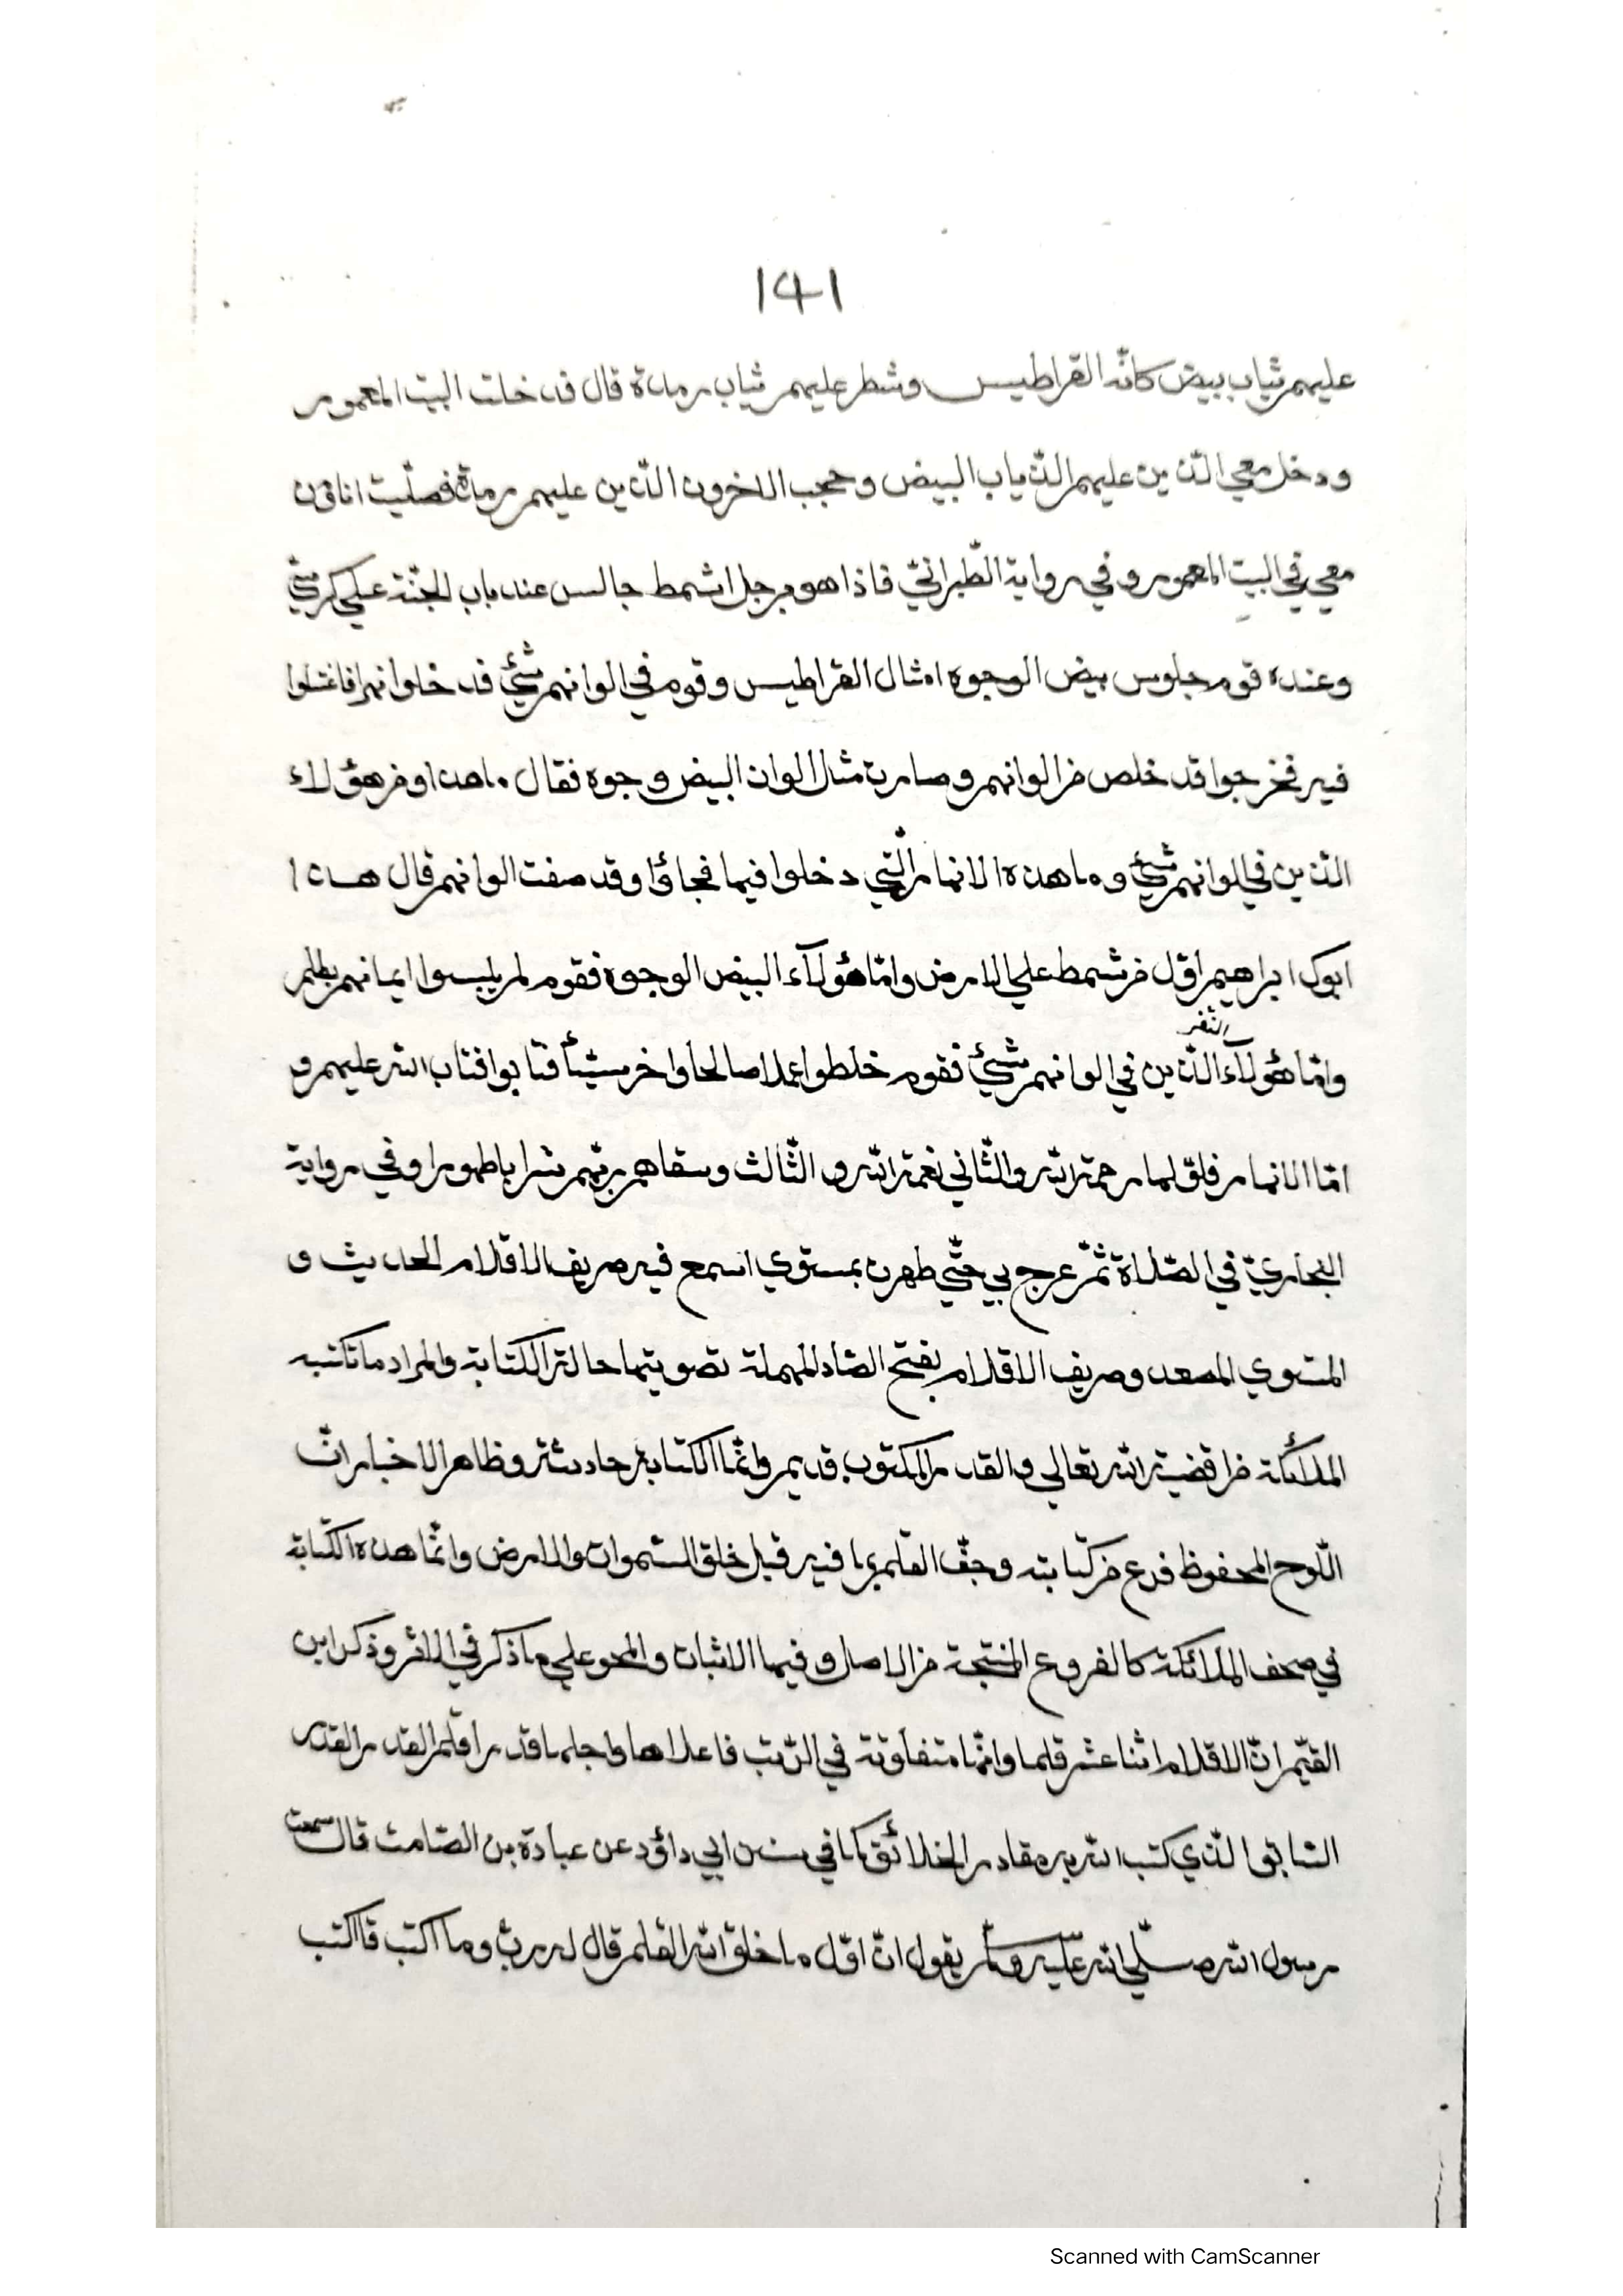 141
عليهم ثياب بيض كانّه القراطيس وشطر عليهم ثياب رمدة قال فدخلت البيت المعمور
ودخل معي الذين عليهم الثياب البيض وحجب الاخرون الذين عليهم رمدة فصلّيت انا ومن
معي في البيت المعمور وفي رواية الطّبرانيّ فاذا هو برجل اشمط جالس عند باب الجنّة علي كرسيّ
وعنده قوم جلوس بيض الوجوه امثال القراطيس وقوم في الوانهم شئ فدخلوا نهرا فاغتسلوا
فيه فخرجوا قد خلص من الوانهم وصارت مثل الوان البيض وجوه فقال ما هذا ومن هؤلاء
الّذين في الوانهم شئ وما هذه الانهار الّتي دخلوا فيها فجاؤا وقد صفت الوانهم قال هذا
ابوك ابراهيم اوّل من شمط علي الارض وامّا هؤلآء البيض الوجوه فقوم لم يلبسوا ايمانهم بظلم
وامّا هؤلآء النّفر الّذين في الوانهم شئ فقوم خلطوا عملا صالحا واخر سيّئا فتابوا فتاب الله عليهم و
امّا الانهار فاوّلها رحمة الله والثّاني نعمة الله و الثّالث وسقاهم ربّهم شرابا طهورا وفي رواية
البخاريّ في الصّلاة ثمّ عرج بي حتّي ظهرت بمستوي اسمع فيه صريف الاقلام الحديث و
المستوي المصعد وصريف الاقلام بفتح الصّاد المهملة تصويتها حالة الكتابة والمراد ما تكتبه
الملائكة من اقضية الله تعالي والقدر المكتوب قديم وانّما الكتابة حادثة وظاهر الاخبار انّ
اللّوح المحفوظ فرع من كتابته وجفّ القلم بما فيه قبل خلق السّموات والارض وانّما هذه الكتابة
في صحف الملائكة كالفروع المنتجة من الاصل وفيها الاثبات والمحو علي ما ذكر في الاثر وذكر ابن
القيّم انّ الاقلام اثنا عشر قلما وانّها متفاوتة في الرّتب فاعلاها واجلها قدرا قلم القدر القدر
السّابق الّذي كتب الله به مقادير الخلائق كما في سنن ابي داؤد عن عبادة بن الصّامت قال سمعت
رسول الله صلّي الله عليه وسلّم يقول انّ اوّل ما خلق الله القلم قال له ربّ وما اكتب قاكتب
Scanned with CamScanner